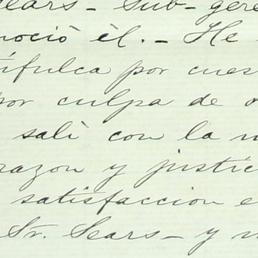 Sears - Sub-gere
noció él. - He
tífulca por cues
por culpa de o
salí con la m
razon y justic
satisfaccion e
Sr. Sears - y m